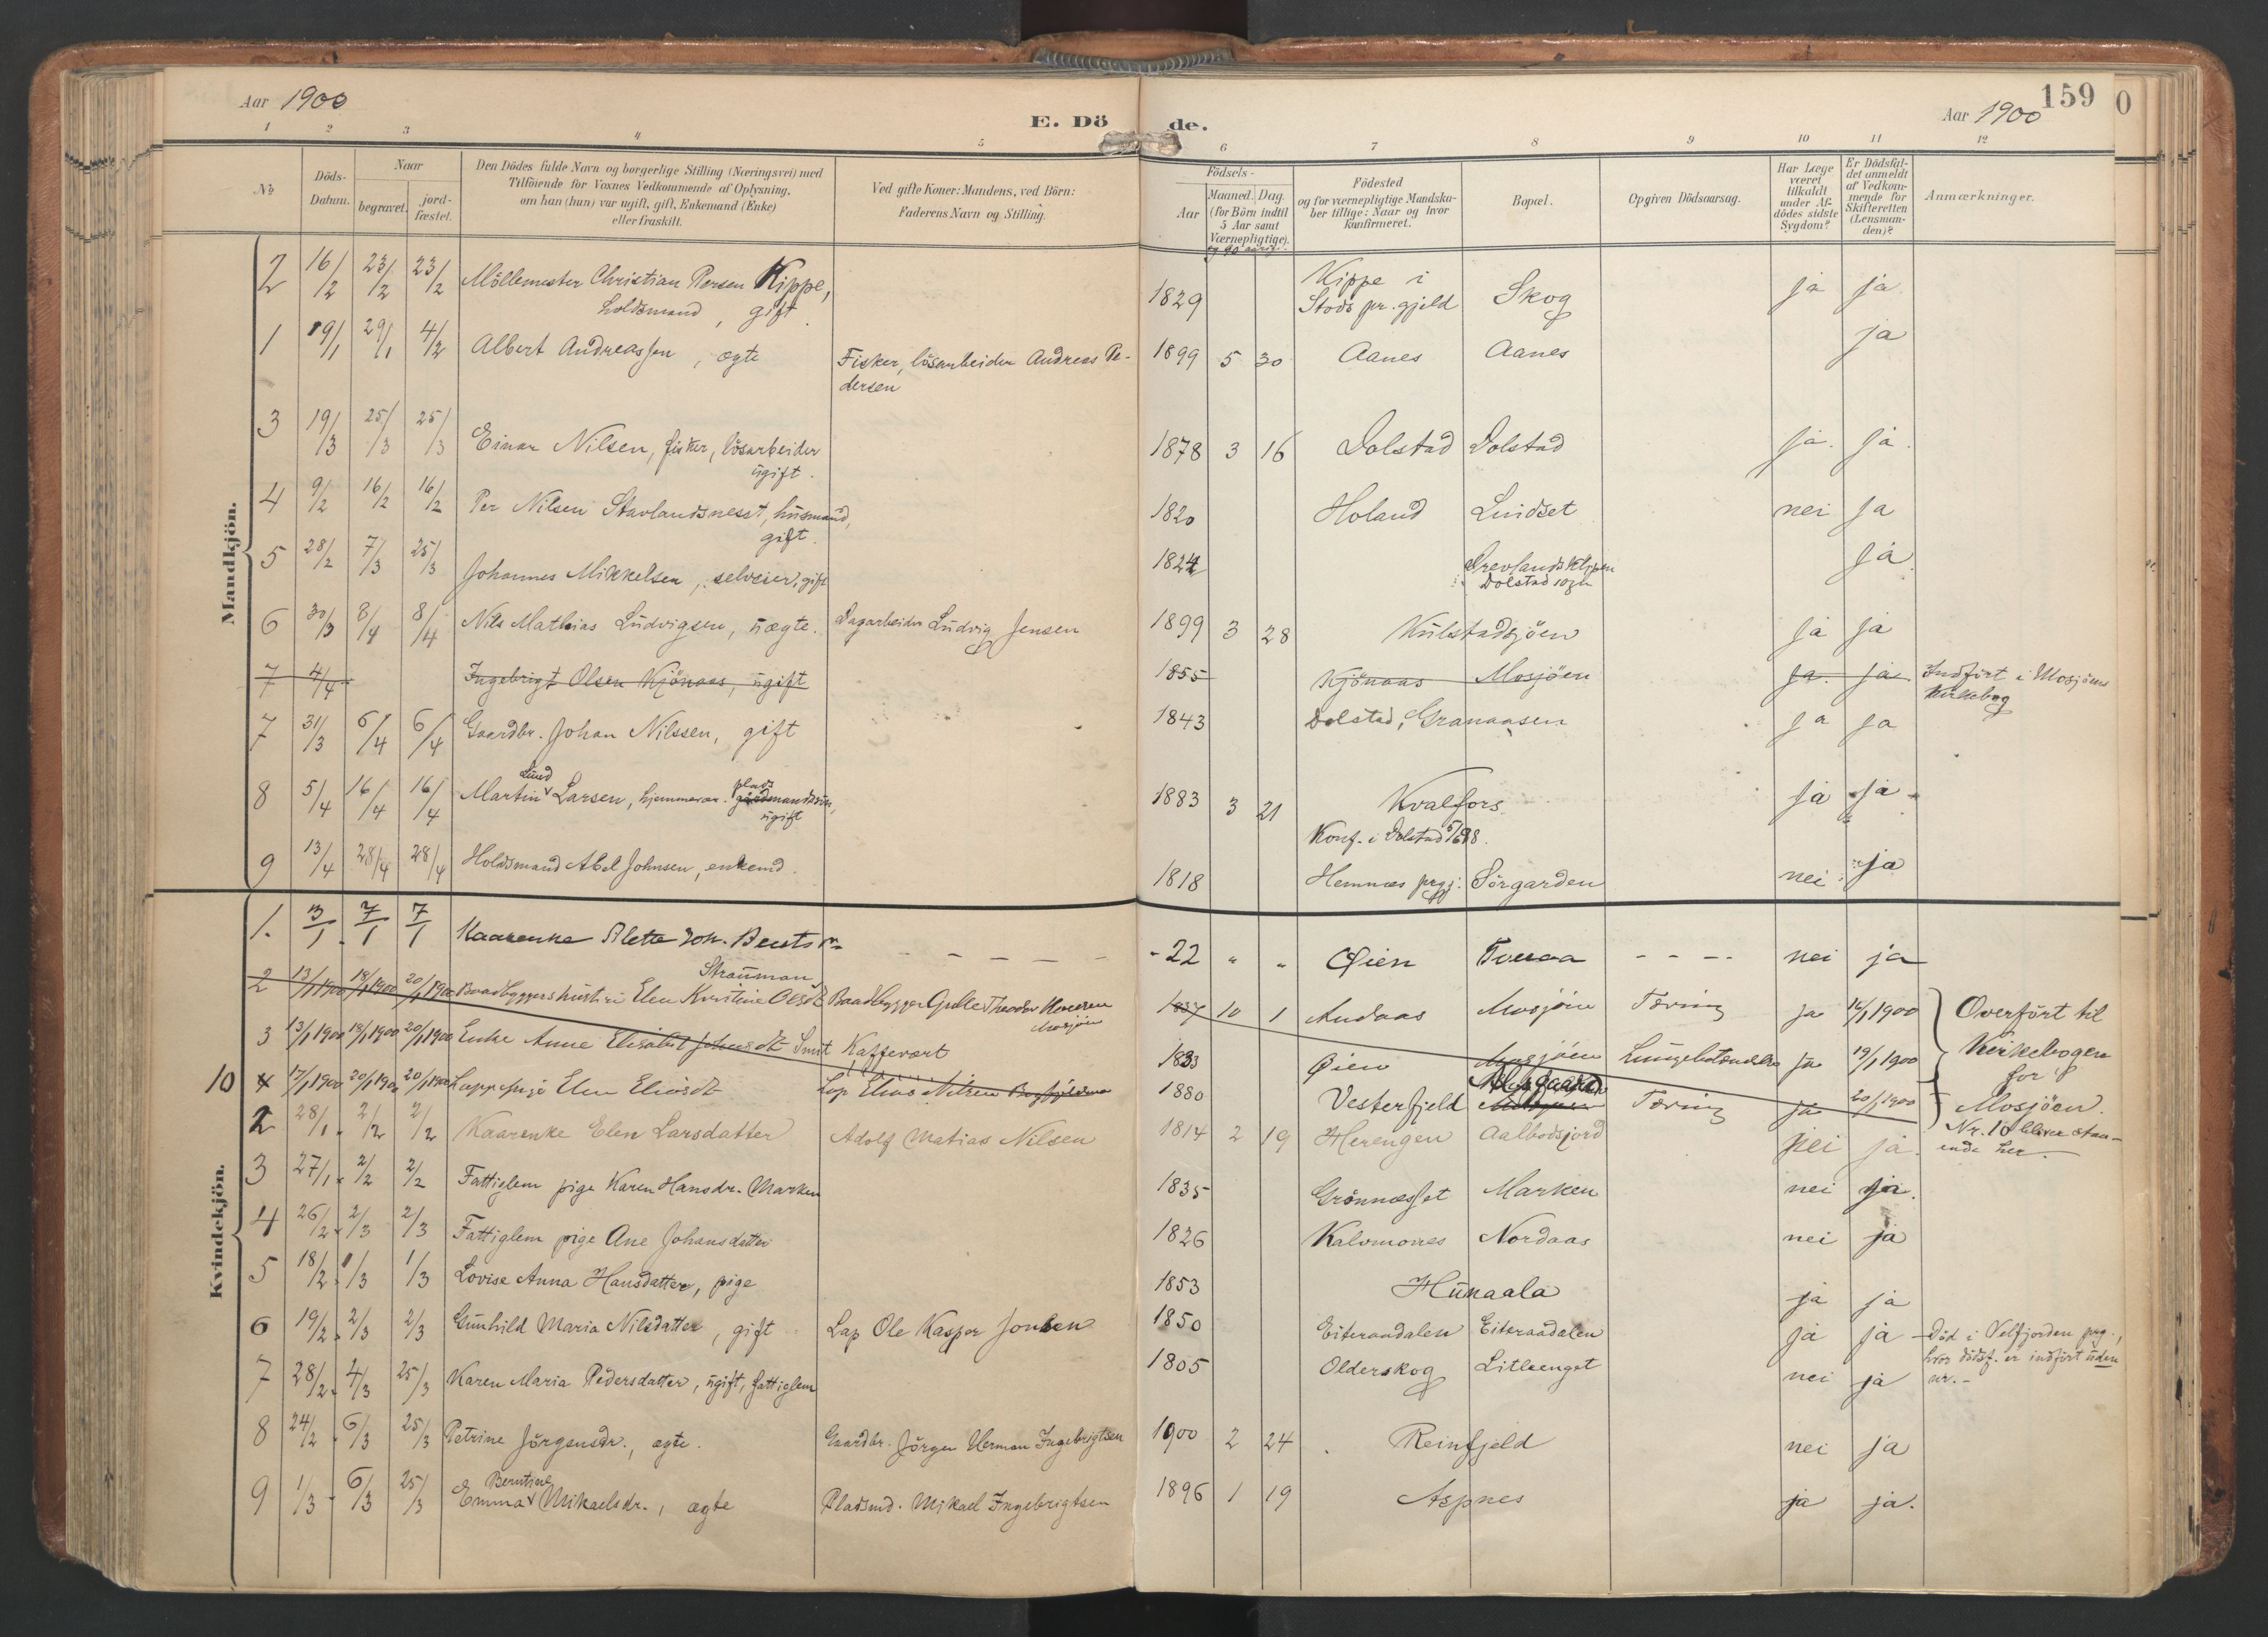 Aar 1900
E. Dö
de.
Aar 1900
159
0
1 2 3 4 5 6 7 8 9 10 11 12
No
Döds-
Datum.
Naar
begravet.
jord-
fæstet.
Den Dödes fulde Navn og borgerlige Stilling (Næringsvei) med
Tilföiende for Voxnes Vedkommende af Oplysning,
om han (hun) var ugift, gift, Enkemand (Enke)
eller fraskilt.
Ved gifte Koner: Mandens, ved Börn:
Faderens Navn og Stilling.
Födsels-
Aar
Maaned. Dag.
(for Börn indtil
5 Aar samt
Værnepligtige).
og 90 aarige.
Födested
og for værnepligtige Mandska-
ber tillige: Naar og hvor
konfirmeret.
Bopæl.
Opgiven Dödsaarsag.
Har Læge
været
tilkaldt
under Af-
dödes sidste
Sygdom?
Er Dödsfal-
det anmeldt
af Vedkom-
mende for
Skifteretten
(Lensman-
den)?
Anmærkninger.
Mandkjön.
2 16/2 23/2 23/2 Möllemester Christian Persen Kippe, 1829 Kippe i Skog ja ja
holdsmand, gift. Stods pr. gjeld
1 19/1 29/1 4/2 Albert Andreassen, ægte Fisker, lösarbeider Andreas Pe- 1899 5 30 Aanes Aanes ja
dersen
3 19/3 25/3 25/3 Einar Nilsen, fisker, lösarbeider 1878 3 16 Dolstad Dolstad ja. ja.
ugift.
4 9/2 16/2 16/2 Per Nilsen Stavlandsnesset, husmand, 1820 Holand Lindset nei ja
gift.
5 28/2 7/3 25/3 Johannes Mikkelsen, selveier, gift 1824 ja
Dolstad sogn
6 30/3 8/4 8/4 Nils Mathias Ludvigsen, uægte. Dagarbeider Ludvig Jensen 1899 3 28 Kulstadsjöen ja ja
7 4/4 Ingebrigt Olsen Kjönaas, ugift 1855 Kjönaas Mosjöen ja. ja Indfört i Mosjöens
kirkebog
7 31/3 6/4 6/4 Gaardbr. Johan Nilssen, gift 1843 Dolstad, Granaasen ja ja
Lund plads
8 5/4 16/4 16/4 Martin Larsen, hjemmevær. gaardmandssön, 1883 3 21 Kvalfors ja ja
ugift
Konf. i Dolstad 5/6 98.
9 13/4 28/4 28/4 Holdsmand Abel Johnsen, enkemd. 1818 Hemnæs prgj. Sörgarden nei ja
Kvindekjön.
1. 3/1 7/1 7/1 Kaarenke Alette Joh. Berntsn - 22 " " Øien nei ja
Strauman
2 13/1 1900 18/1 1900 20/1 1900 Baadbyggers hustru Elen Kristine Olsdt Baadbygger Gulle Theodor 1837 10 1 Andaas Mosjöen Tæring ja 16/1 1900 Overfört til
Mosjöen
3 13/1 1900 18/1 1900 20/1 1900 Enke Anne Elisabet Johnsdt Smit Kaffevært 1823 Øien Mosjöen Lungebetændelse ja 19/1 1900 Kirkebogen
for
10 4 17/1 1900 20/1 1900 20/1 1900 Lappepige Elen Eliasdt Lap Elias Nilsen 1880 Vesterfjeld Tæring ja 20/1 1900 Mosjöen.
2 28/1 2/2 2/2 Kaarenke Elen Larsdatter Adolf Matias Nilsen 1814 2 19 Herengen Aalbodsjord nei ja. Nr. 10 bliver staa-
ende her
3 27/1 2/2 2/2 Fattiglem pige Karen Hansdr. Marken 1835 Grönnæsset Marken nei ja.
4 26/2 2/3 2/3 Fattiglem pige Ane Johansdatter 1826 Kalvmones Nordaas nei ja
5 18/2 1/3 1/3 Lovise Anna Hansdatter, pige 1853 Hunaala ja ja
6 19/2 2/3 2/3 Gunhild Maria Nilsdatter, gift Lap Ole Kasper Jonsen 1850 Eiteraadalen Eiteraadalen ja ja Död i Velfjorden prg.,
hvor dödsf. er indfört uden
nr.-
7 28/2 4/3 25/3 Karen Maria Pedersdatter, ugift, fattiglem 1805 Olderskog Litleenget nei ja
8 24/2 6/3 25/3 Petrine Jörgensdr., ægte. Gaardbr. Jörgen Herman Ingebrigtsen 1900 2 24 Reinfjeld nei ja
Berntine
9 1/3 6/3 25/3 Emma Mikaelsdr., ægte Pladsmd. Mikael Ingebrigtsen 1896 1 19 Aspnes ja ja.